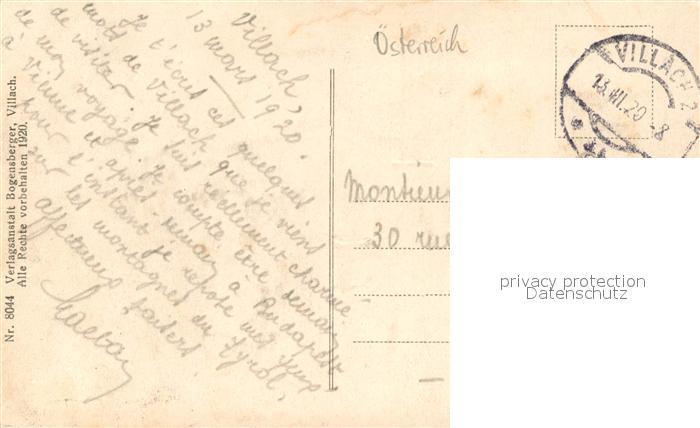 Villach,
13 mars 1920.
Je t'écris ces quelques
mots de Villach que je viens
de visiter. Je suis réellement charmé
de mon voyage. Je compte être demain
à Vienne et après-demain à Budapest
Pour l'instant je repose mes yeux
sur les montagnes du Tyrol,
affectueux baisers!
Österreich
VILLACH 2
13.VII.20-8
Monsieur
30 rue
privacy protection
Datenschutz
Nr. 8044 Verlagsanstalt Bogensberger, Villach.
Alle Rechte vorbehalten 1920.